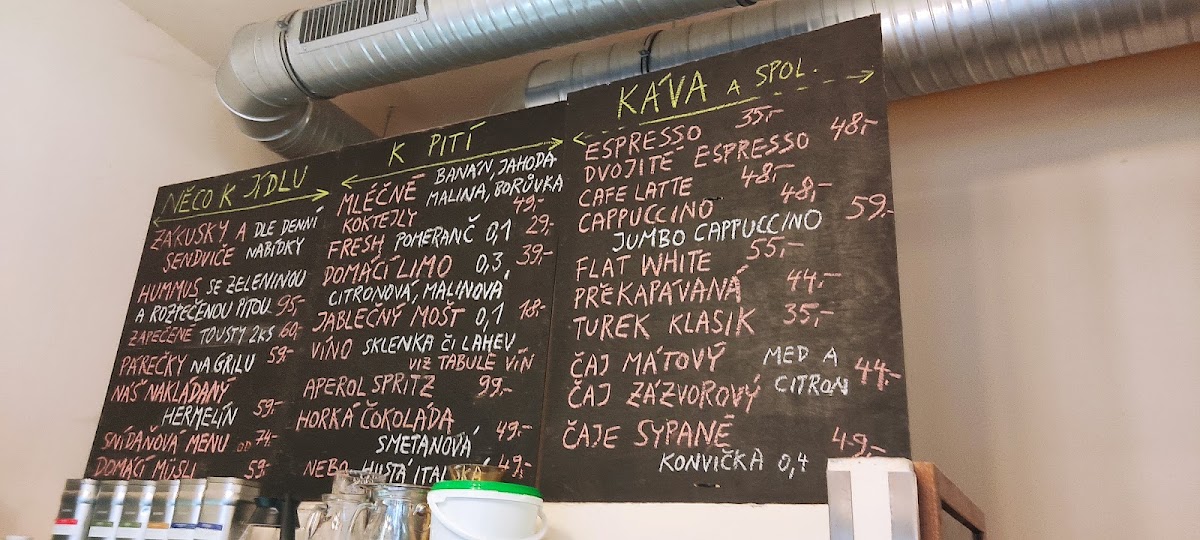 NĚCO K JÍDLU
ZÁKUSKY A DLE DENNÍ
SENDVIČE NABÍDKY
HUMMUS SE ZELENINOU
A ROZPEČENOU PITOU 95,-
ZAPEČENÉ TOUSTY 2KS 60,-
PÁREČKY NA GRILU 59,-
NÁŠ NAKLÁDANÝ
HERMELÍN 59,-
SNÍDAŇOVÁ MENU OD 74,-
DOMÁCÍ MÜSLI 59,-
K PITÍ
MLÉČNÉ BANÁN, JAHODA
KOKTEJLY MALINA, BORŮVKA
49,-
FRESH POMERANČ 0,1 29,-
DOMÁCÍ LIMO 0,3 39,-
CITRONOVÁ, MALINOVÁ
JABLEČNÝ MOŠT 0,1 18,-
VÍNO SKLENKA ČI LAHEV
VIZ TABULE VÍN
APEROL SPRITZ 99,-
HORKÁ ČOKOLÁDA
SMETANOVÁ 49,-
NEBO HUSTÁ ITALSKÁ 49,-
KÁVA A SPOL.
ESPRESSO 35,-
DVOJITÉ ESPRESSO 48,-
CAFE LATTE 48,-
CAPPUCCINO 48,-
JUMBO CAPPUCCINO 59,-
FLAT WHITE 55,-
PŘEKAPÁVANÁ 44,-
TUREK KLASIK 35,-
ČAJ MÁTOVÝ MED A
ČAJ ZÁZVOROVÝ CITRON 44,-
ČAJE SYPANÉ 49,-
KONVIČKA 0,4